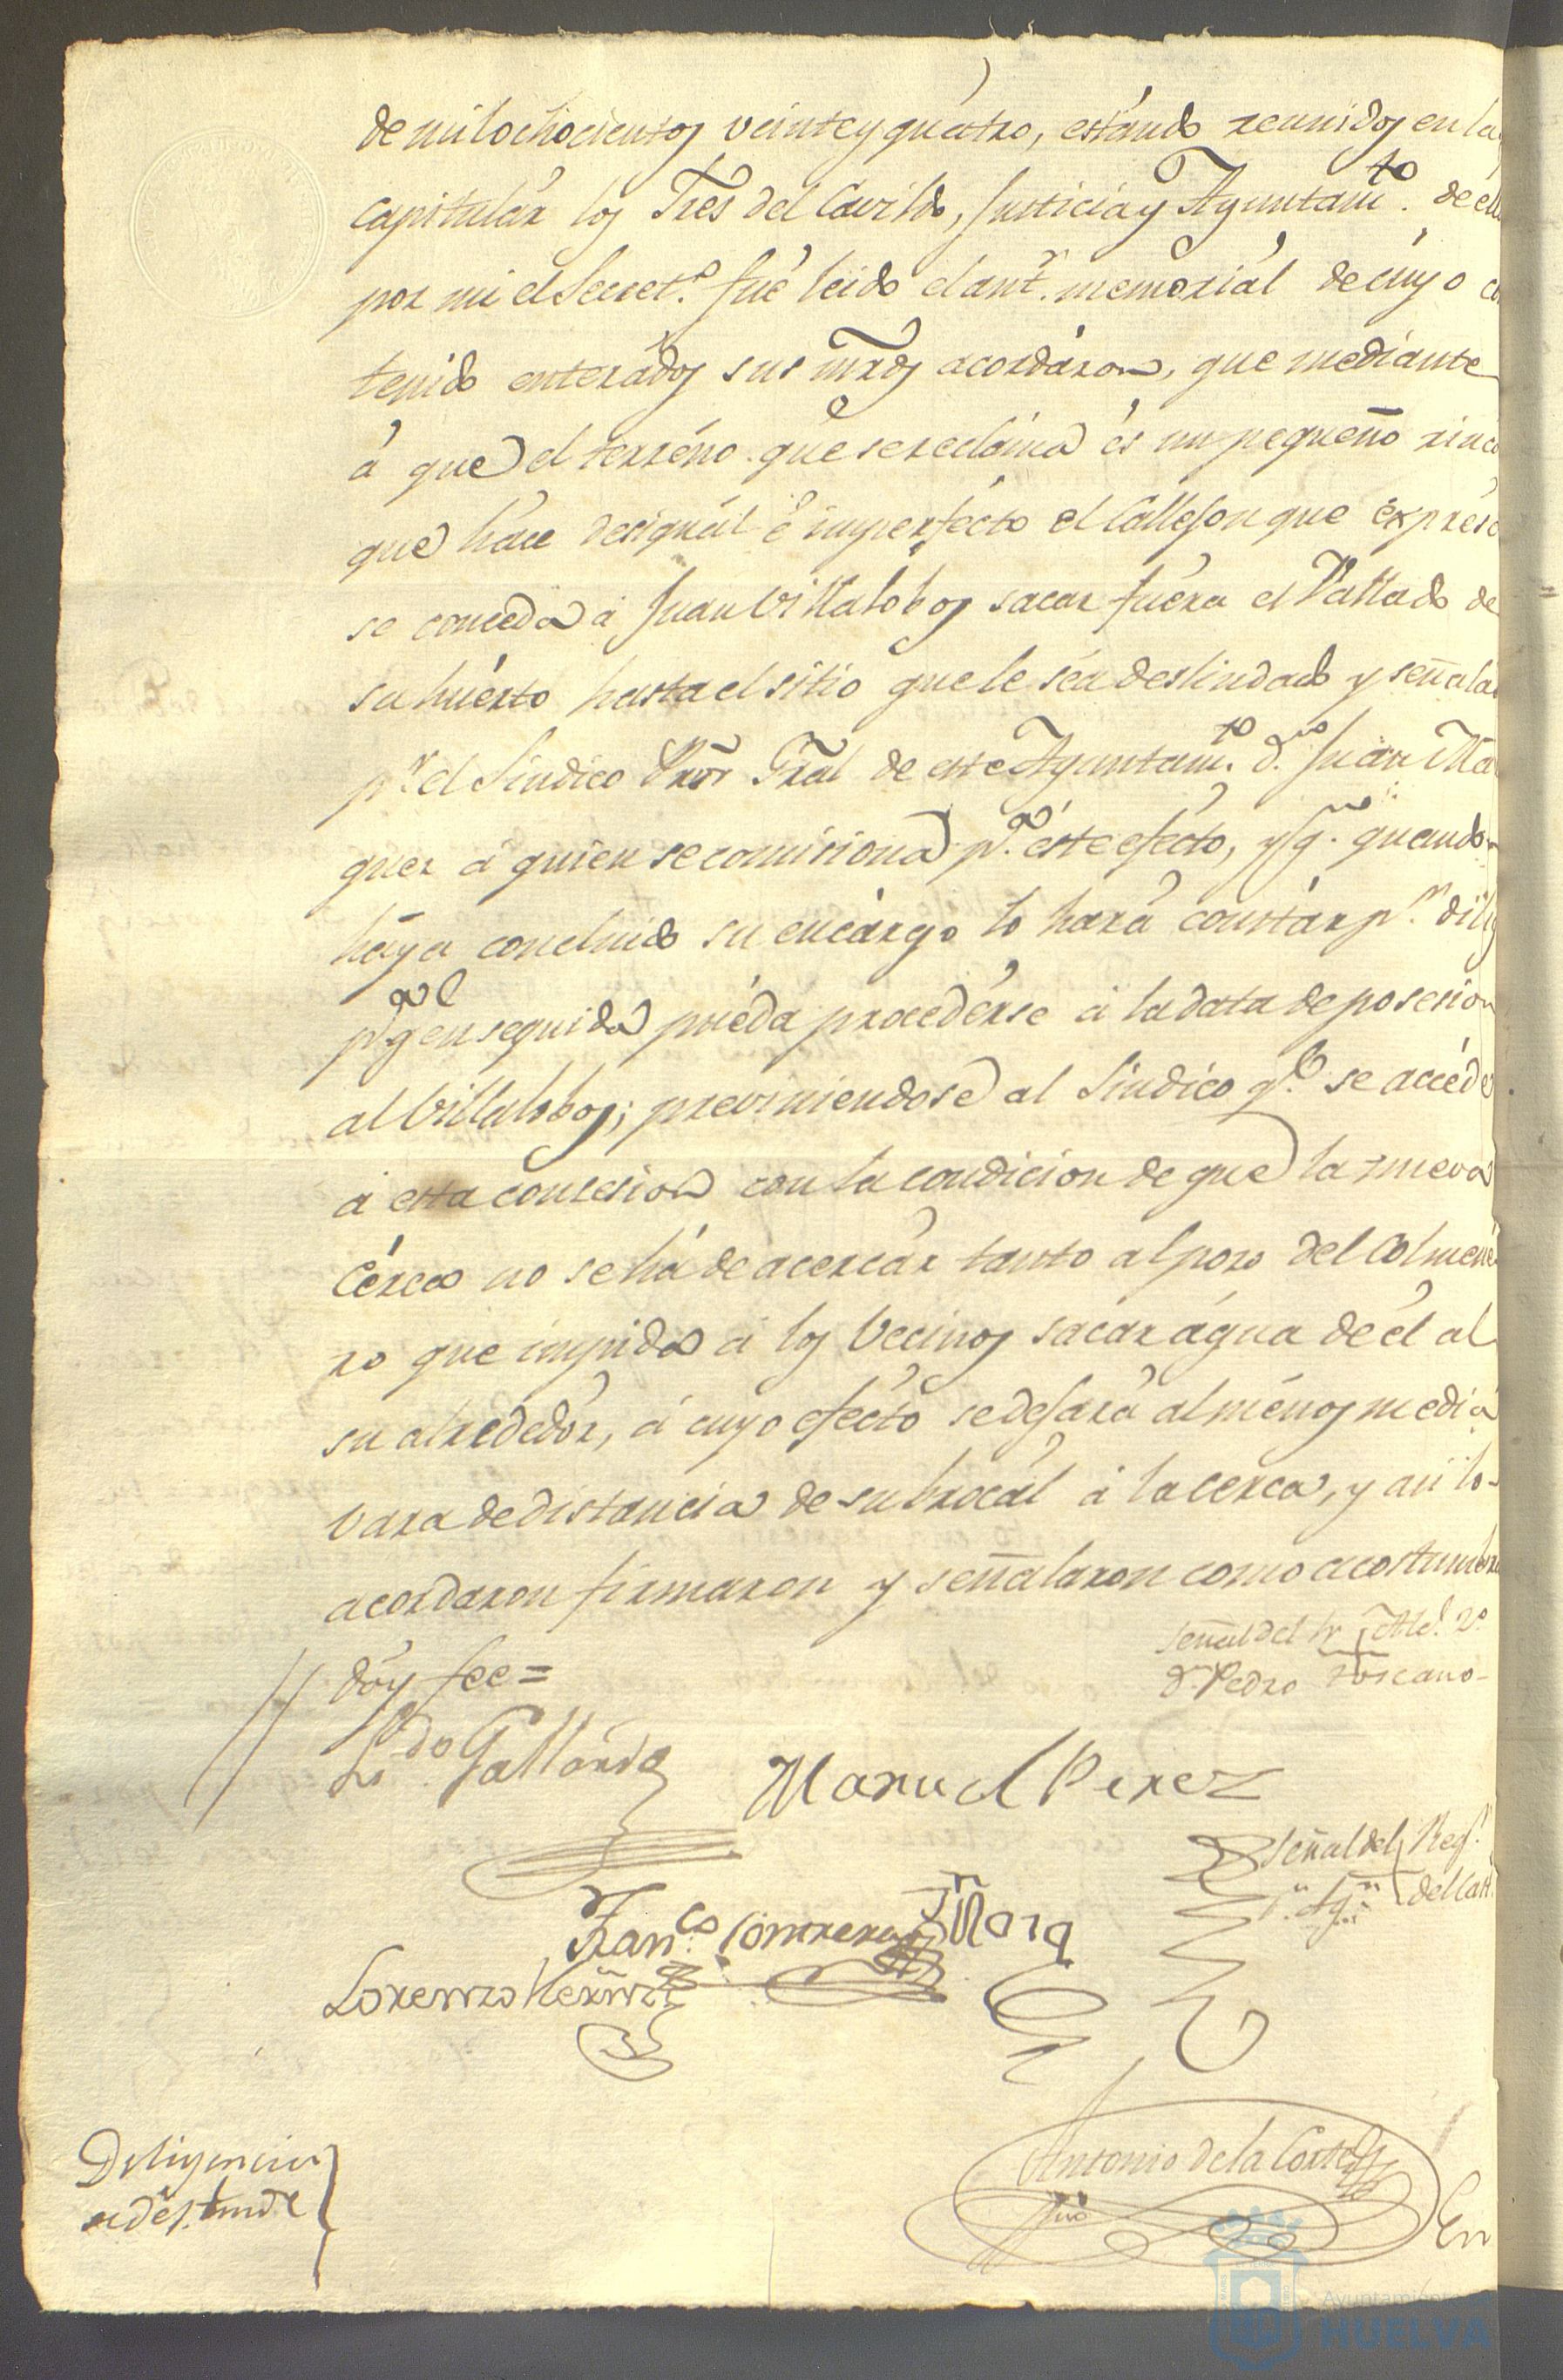 de mil ochocientos veinte y quátro, estándo reunidos en la
capitulár los Sres del Cavildo, Justicia y Ayuntamto. de ella
por mi el Secreto. fué leido el antr. memoriál de cuyo con
tenido enterádos sus mrds acordáron, que mediánte
á que el terréno que se recláma és un pequeño rinco
que háce desiguál é imperfécto el Callejon que éxprésa
se conceda á Juan Villalobos sacar fuéra el Vallado de
su huérto hasta el sitio que le séa deslindado y señalá
pr. el Síndico Pror Gral de este Ayuntamto. Dn. Juan Ma
guer á quien se comisiona pa. éste efécto, y qe. quando
háya concluido su encárgo lo hará constár pr. dilig
pa. q enseguida puéda procedérse á la data de posesion
al Villalobos; previniendose al Síndico qe. se accéde
á esta concesion con la condicion de que la nueva
cérca no se há de acercár tanto al pozo del Colmené
ro que impida á los Vecinos sacar água de él al
su alrededór, á cuyo efécto se dejará al ménos média
vara de distáncia de su brocál á la cerca, y asi lo
acordaron firmaron y señalaron como acostumbra
dóy fee=
señal del Sr Alce. 2o.
Dn. Pedro Toscano
Ldo Gallárdo
Manuel Perez
señal del Regr.
del Cast.
Franco. Contreras
Jn Marq
Lorenzo Hernz
Antonio de la Corte
Srio
Diligencia
de deslinde
En
Ayuntamiento
HUELVA